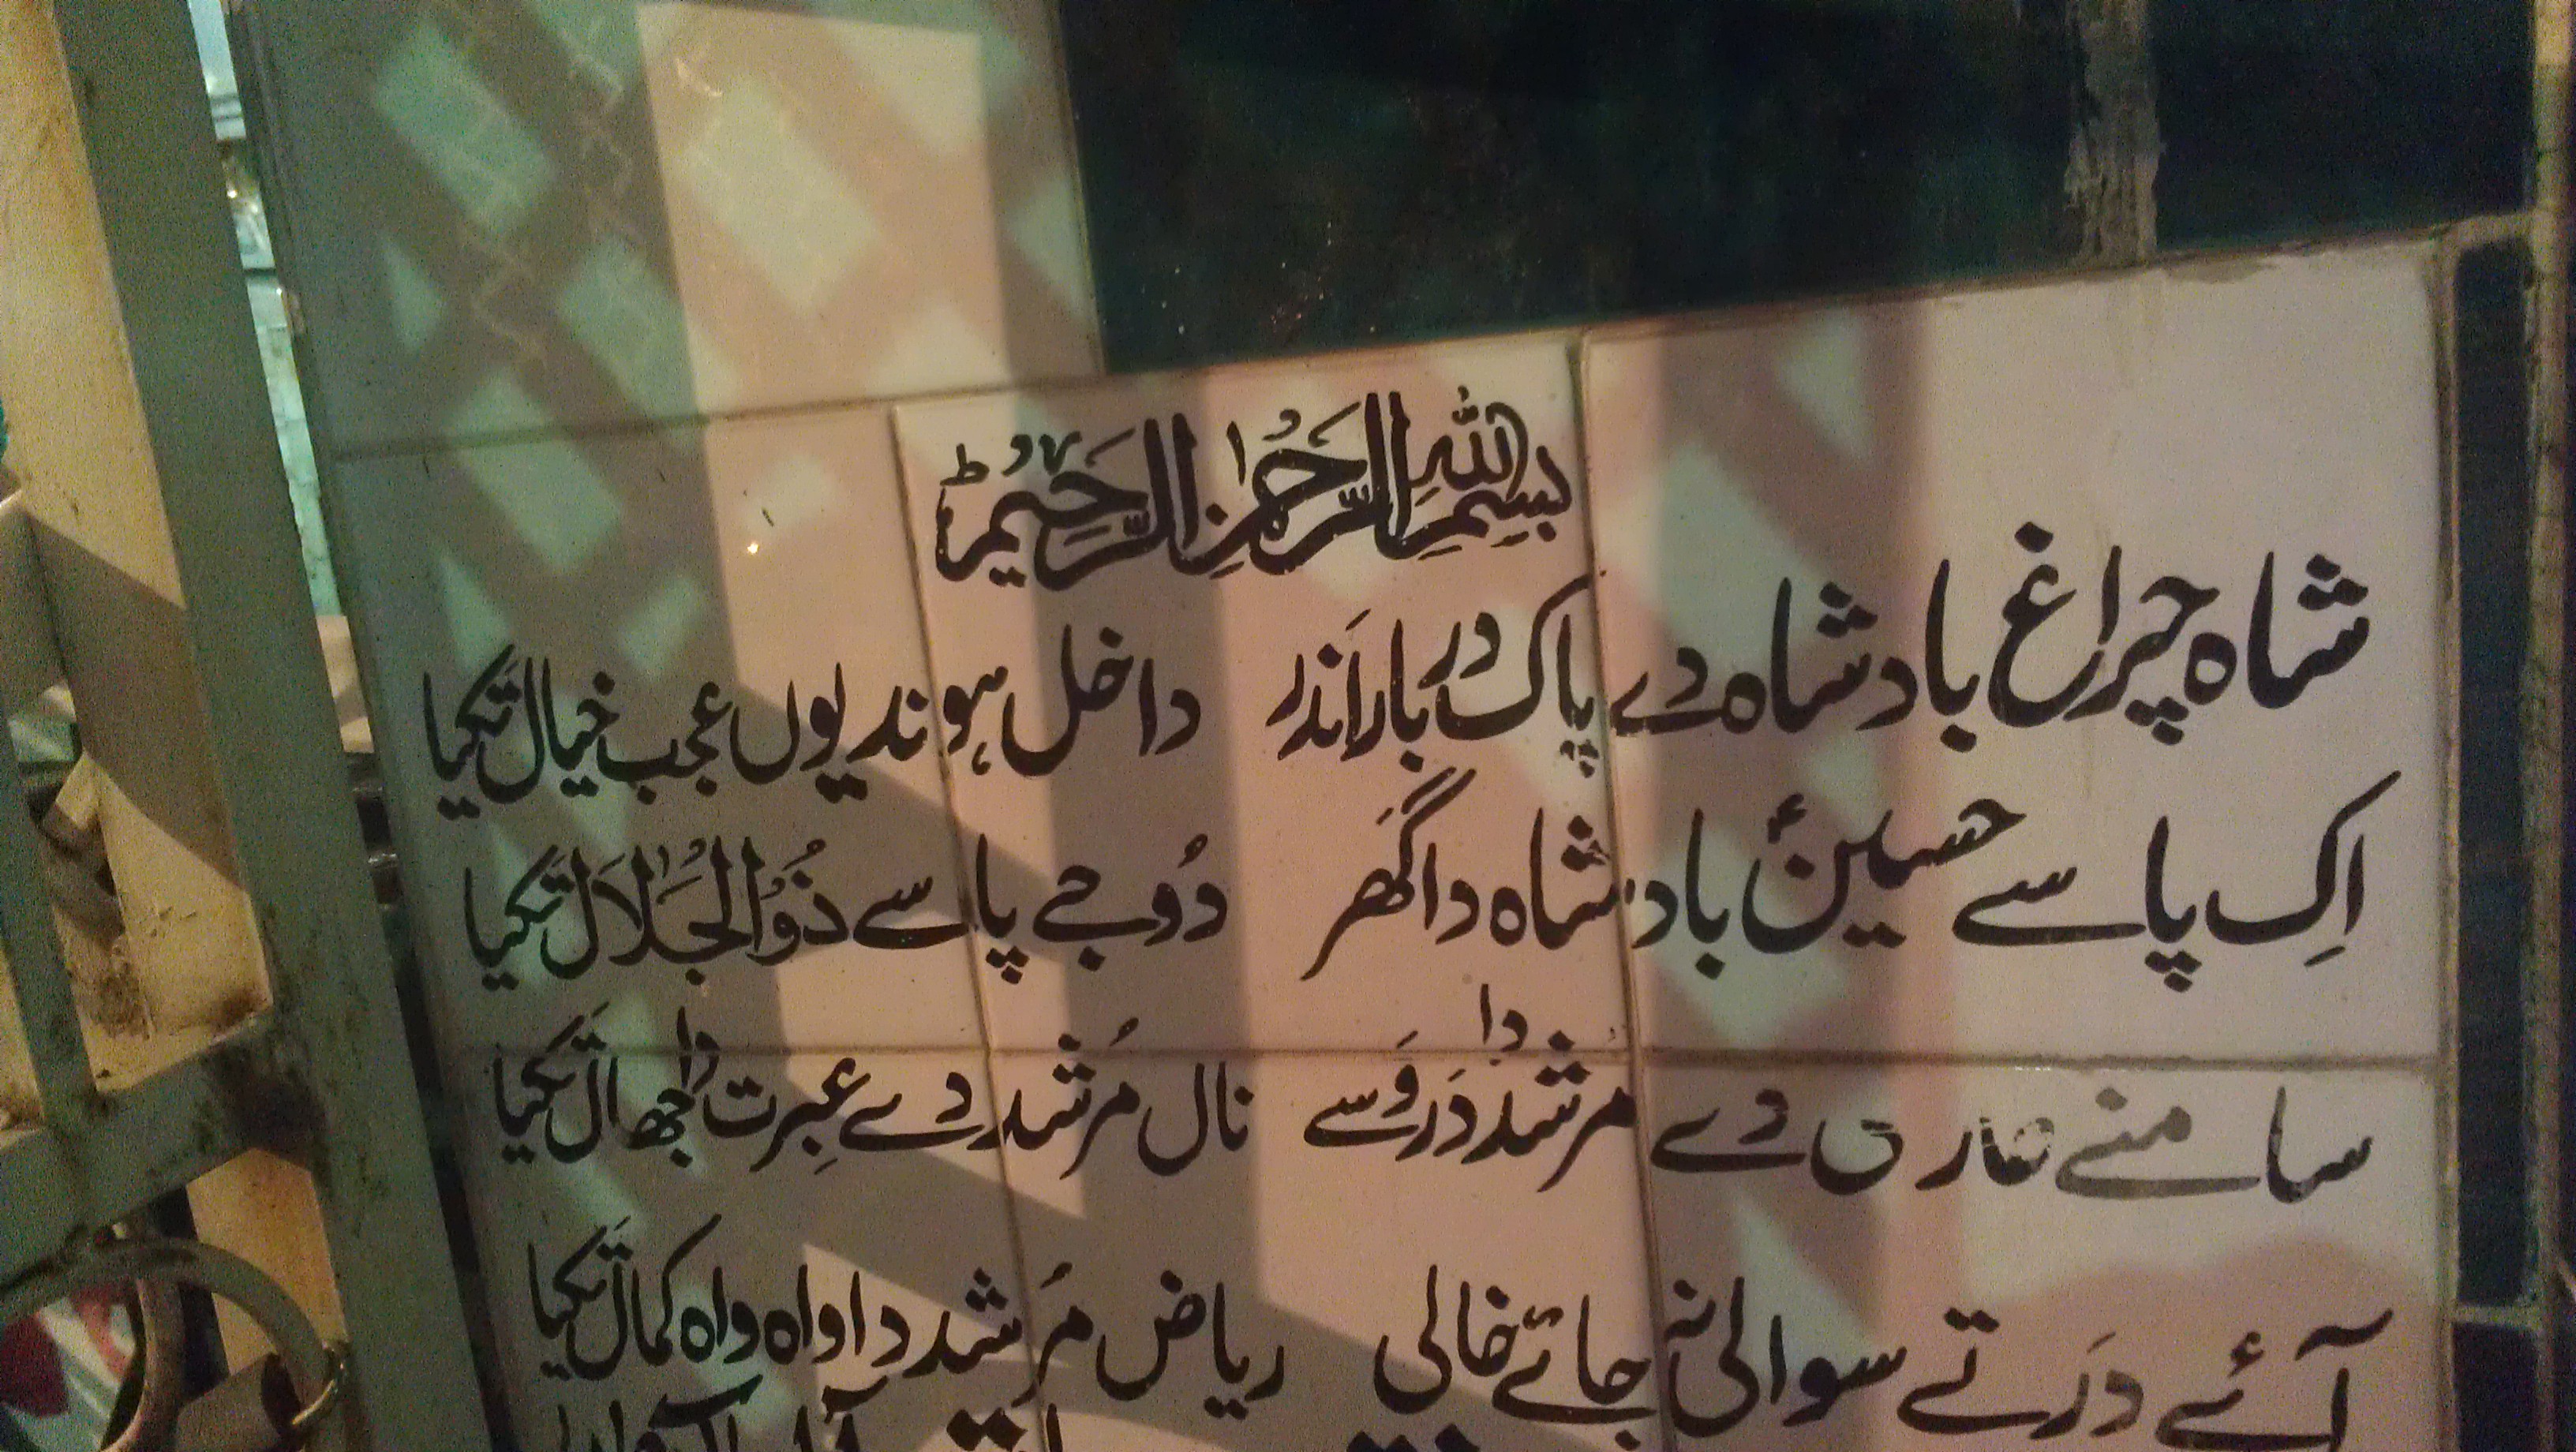 بِسْمِ اللّٰهِ الرَّحْمٰنِ الرَّحِيْمِ
شاہ چراغ بادشاہ دے پاک دربار اَندر داخل ہوندیوں عجب خیال تکیا
اِک پاسے حسینؑ بادشاہ دا گھَر دُوجے پاسے ذُوالجَلَال تَکیا
سامنے دے مُرشد دا دَر وَسے نال مُرشد دے عِبرت دا جھال تَکیا
آئے دَر تے سوالی نہ جائے خالی ریاض مُرشد دا واہ واہ کمال تَکیا